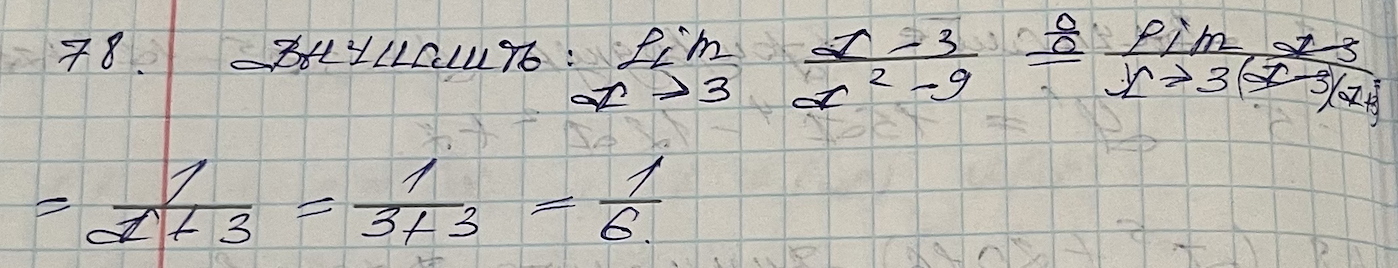 78. Вычислить: lim x→3 (x-3)/(x²-9) =(0/0) lim x→3 (x-3)/((x-3)(x+3))
= 1/(x+3) = 1/(3+3) = 1/6.